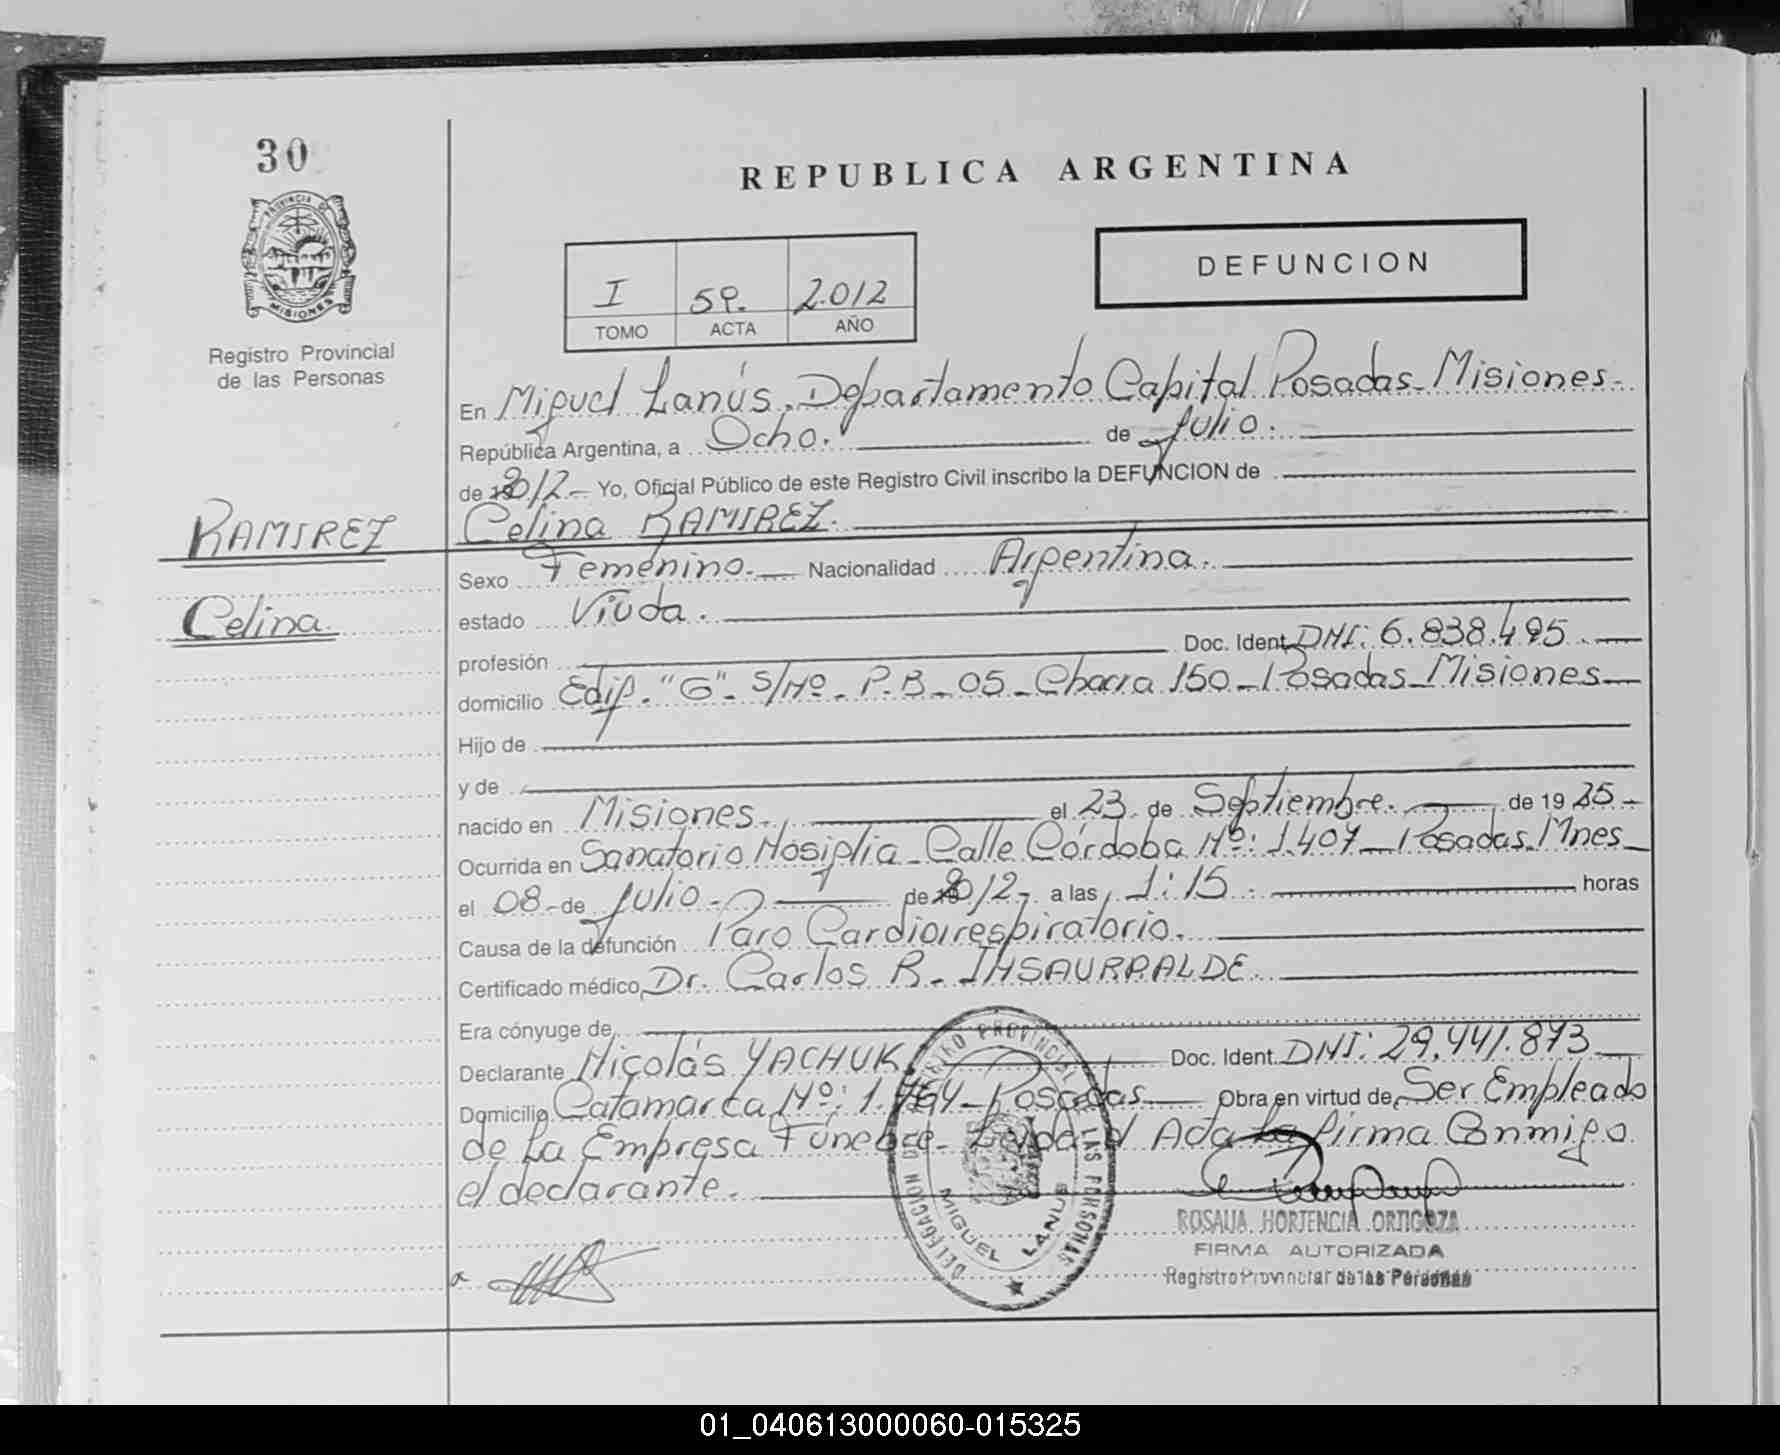 30
REPUBLICA ARGENTINA
PROVINCIA DE
MISIONES
Registro Provincial
de las Personas
DEFUNCION
I 59. 2.012
TOMO ACTA AÑO
En Miguel Lanús. Departamento Capital Posadas - Misiones -
República Argentina, a Ocho. de Julio.
de 2012.- Yo, Oficial Público de este Registro Civil inscribo la DEFUNCION de
RAMIREZ
Celina RAMIREZ.
Celina
Sexo Femenino. Nacionalidad Argentina.
estado Viuda.
profesión Doc. Ident. DNI: 6.838.495.
domicilio Edif. "G" - S/Nº - P.B - 05 - Chacra 150 - Posadas - Misiones
Hijo de
y de
nacido en Misiones. el 23 de Septiembre. de 19 35 -
Ocurrida en Sanatorio Nosiglia - Calle Córdoba Nº: 1.407 - Posadas. Mnes
el 08 - de Julio. - de 2012 - a las 1:15. horas
Causa de la defunción Paro Cardiorrespiratorio.
Certificado médico Dr. Carlos R. INSAURRALDE.
Era cónyuge de
Declarante Nicolás YACHUK. Doc. Ident. DNI: 29.441.873
Domicilio Catamarca Nº: 1.764 - Posadas Obra en virtud de Ser Empleado
de La Empresa Fúnebre - Leída el Acta La firma Conmigo
el declarante.
REGISTRO PROVINCIAL DE LAS PERSONAS
DELEGACION
MIGUEL LANUS
ROSALIA HORTENCIA ORTIGOZA
FIRMA AUTORIZADA
Registro Provincial de las Personas
01_040613000060-015325